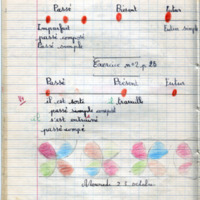 Passé Présent Futur
Imparfait Futur simple
passé composé
Passé simple
Exercice n°2 p. 28
Passé Présent Futur
il est sorti il travaille
passé simple
s'est entraîné
passé composé
Mercredi 22 octobre